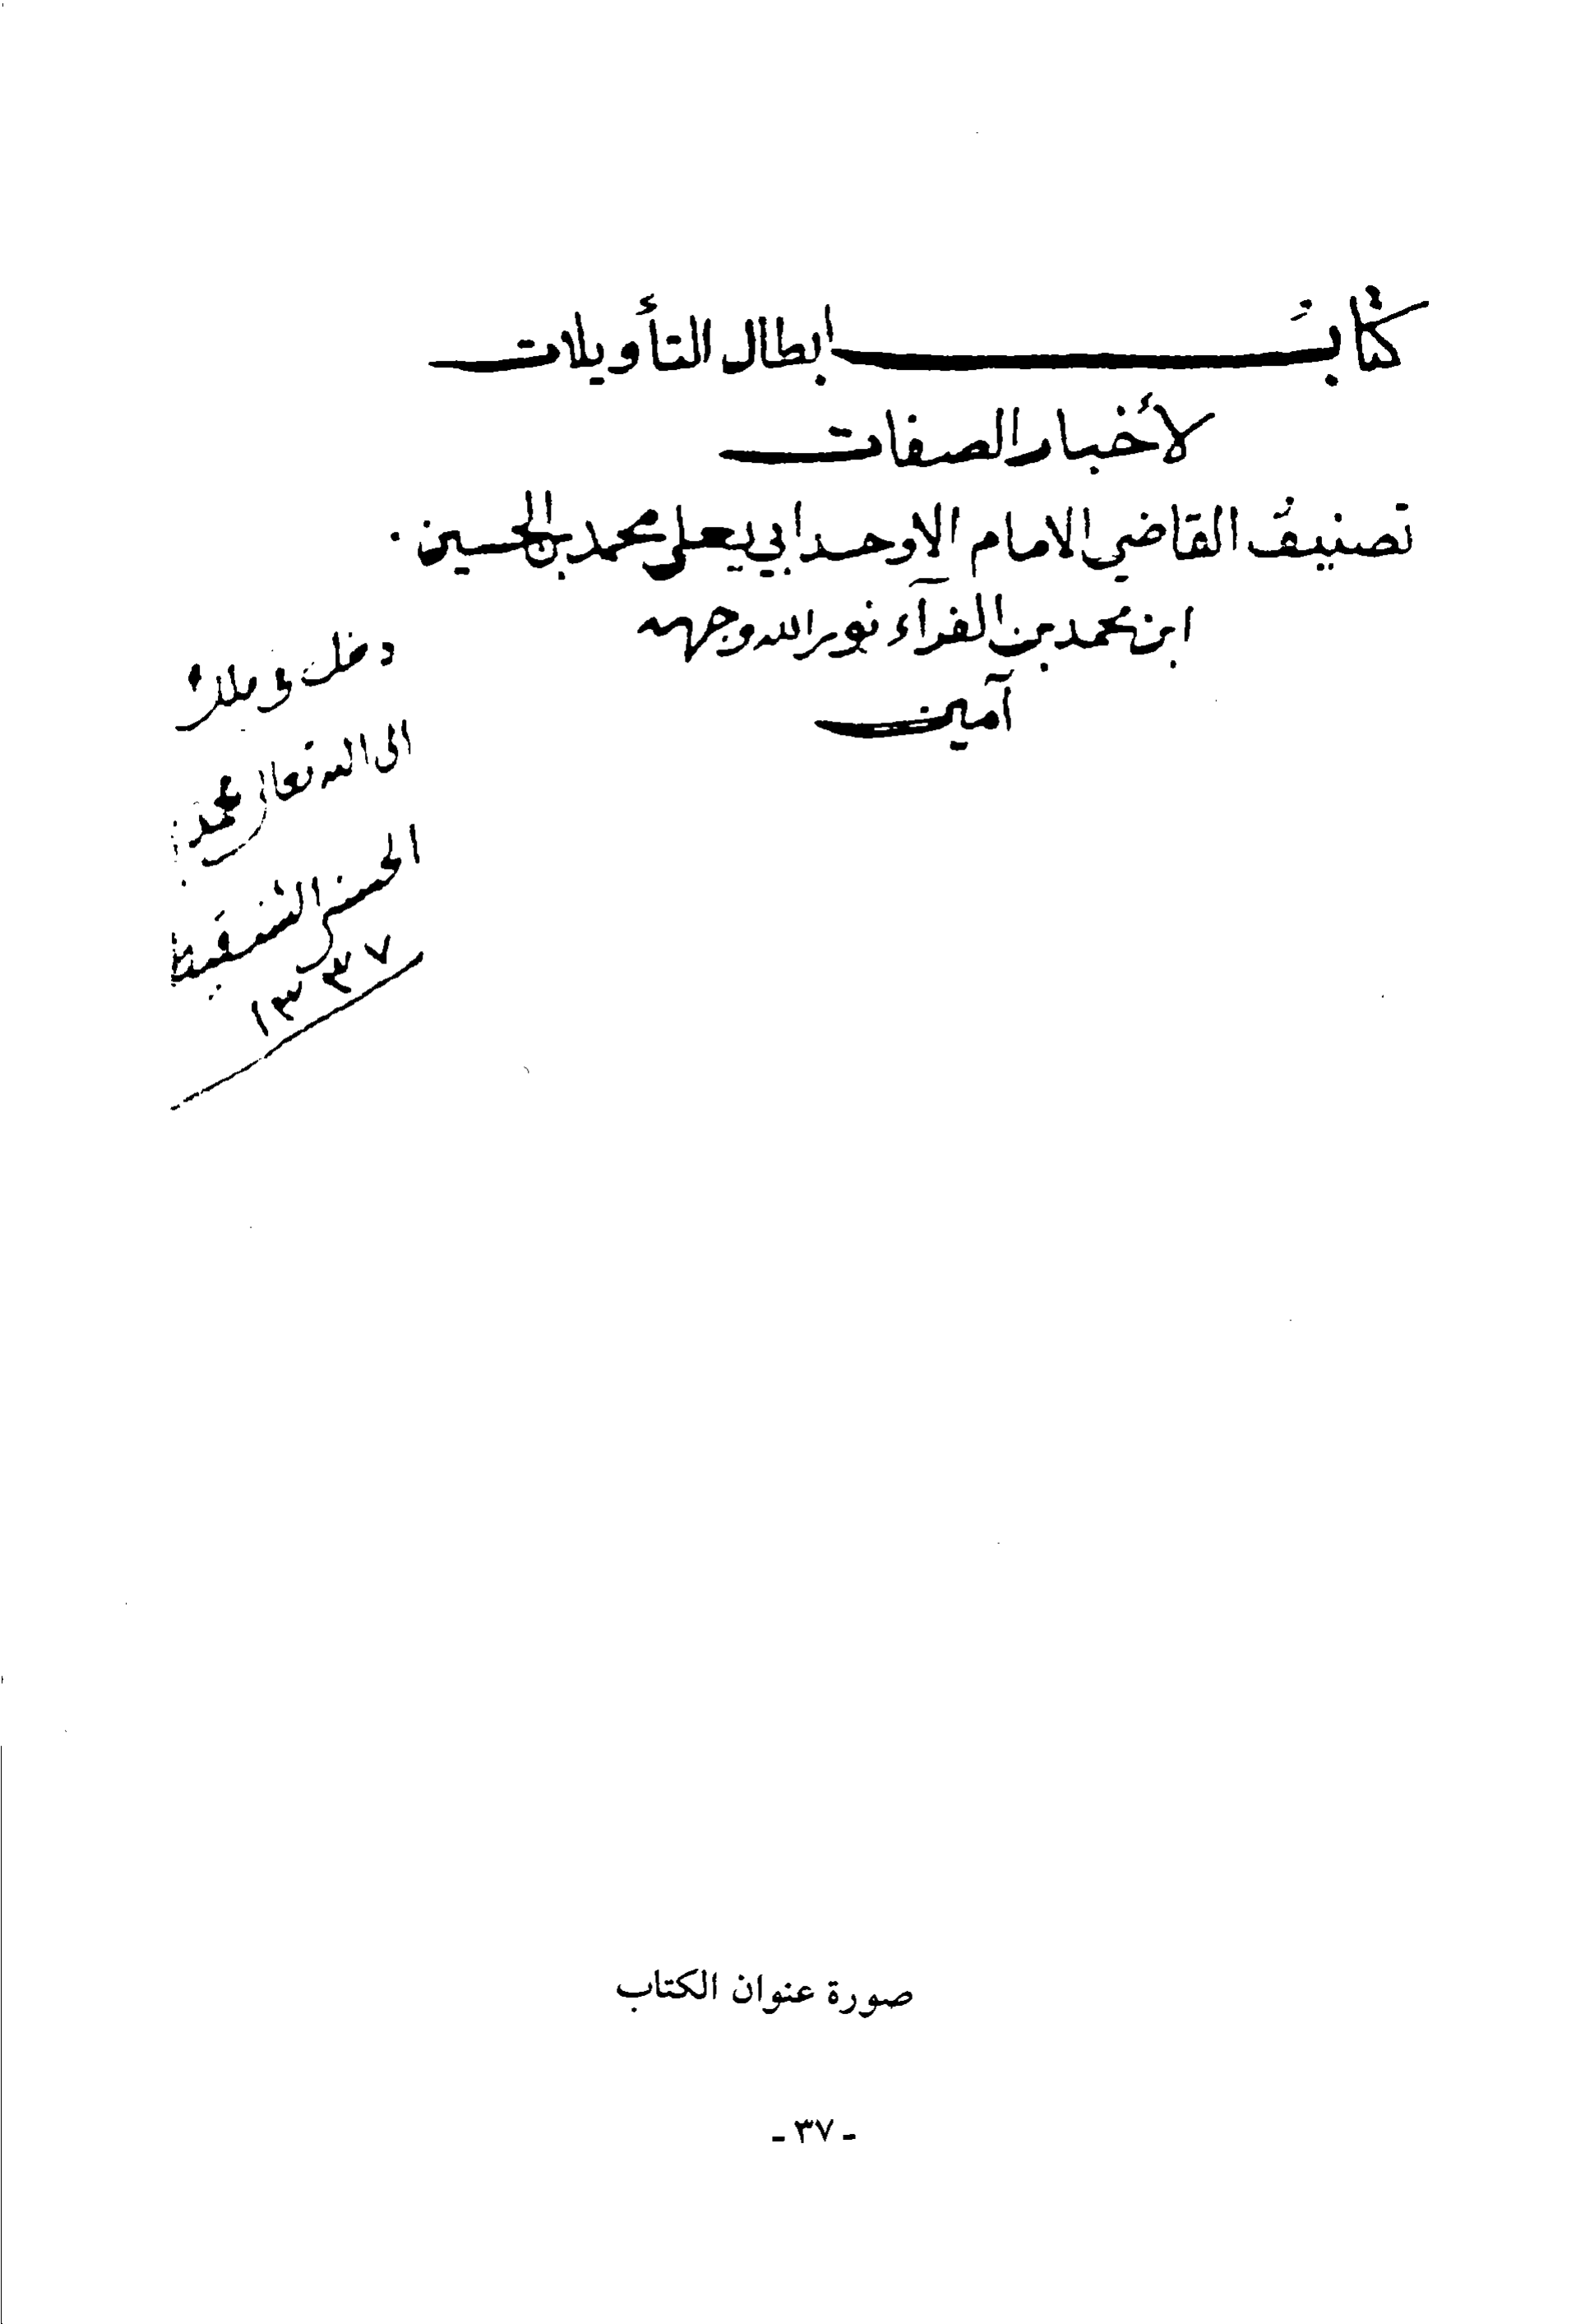 كتاب ابطال التأويلات
لأخبار الصفات
تصنيف القاضي الامام الاوحد ابي يعلى محمد بن الحسين
ابن محمد بن الفرآء نور الله وجهه
آمين
دخل في
الى الله تعالى محمد
الحسني
١٣٣٧
صورة عنوان الكتاب
- ٣٧ -